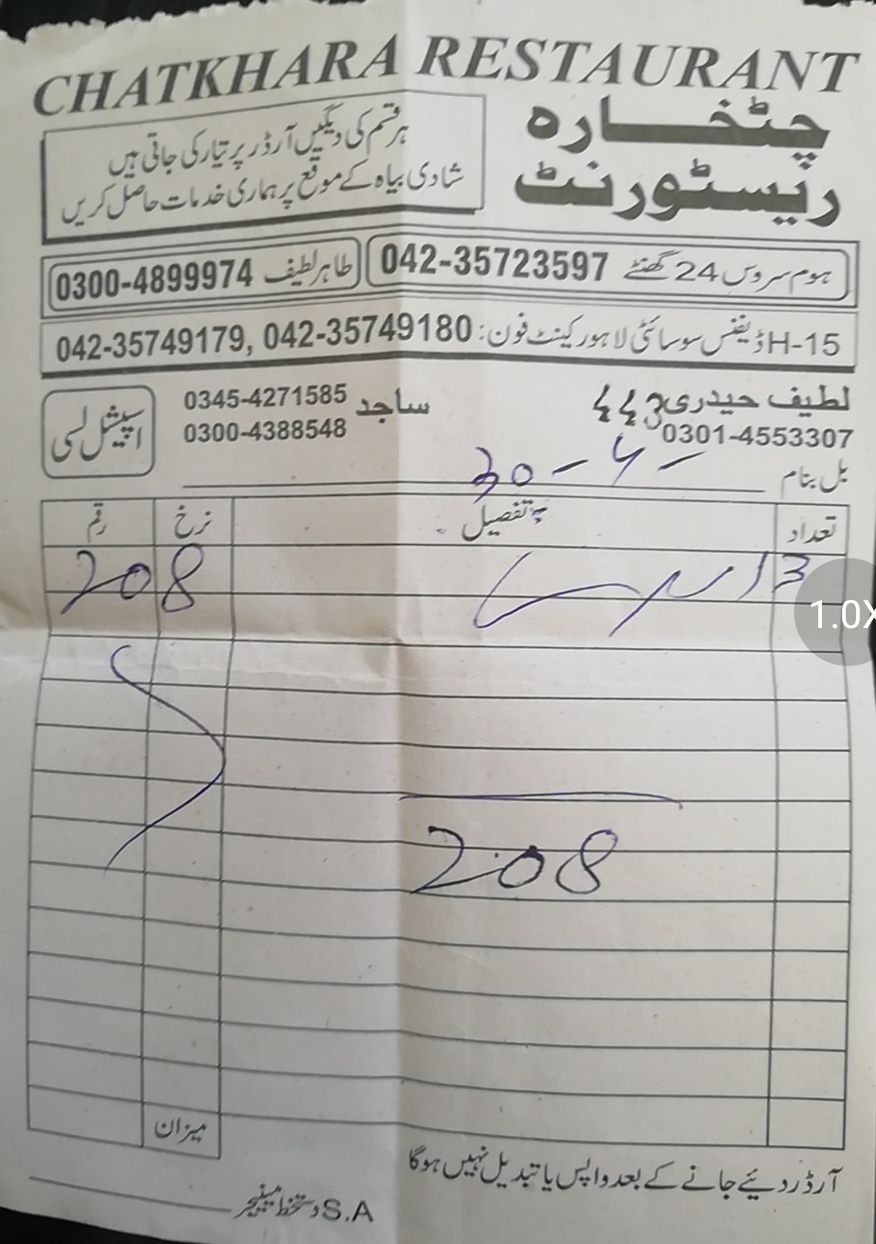 CHATKHARA RESTAURANT
چٹخارہ
ریسٹورنٹ
ہر قسم کی دیگیں آرڈر پر تیار کی جاتی ہیں
شادی بیاہ کے موقع پر ہماری خدمات حاصل کریں
ہوم سروس 24 گھنٹے 042-35723597
طاہر لطیف 0300-4899974
H-15 ڈیفنس سوسائٹی لاہور کینٹ فون: 042-35749179, 042-35749180
لطیف حیدری 443
0301-4553307
ساجد 0345-4271585
0300-4388548
اسپیشل لسی
بل بنام 30-4-
تعداد تفصیل نرخ رقم
3 208
208
میزان
آرڈر دیئے جانے کے بعد واپس یا تبدیل نہیں ہوگا
S.A دستخط مینیجر
1.0X